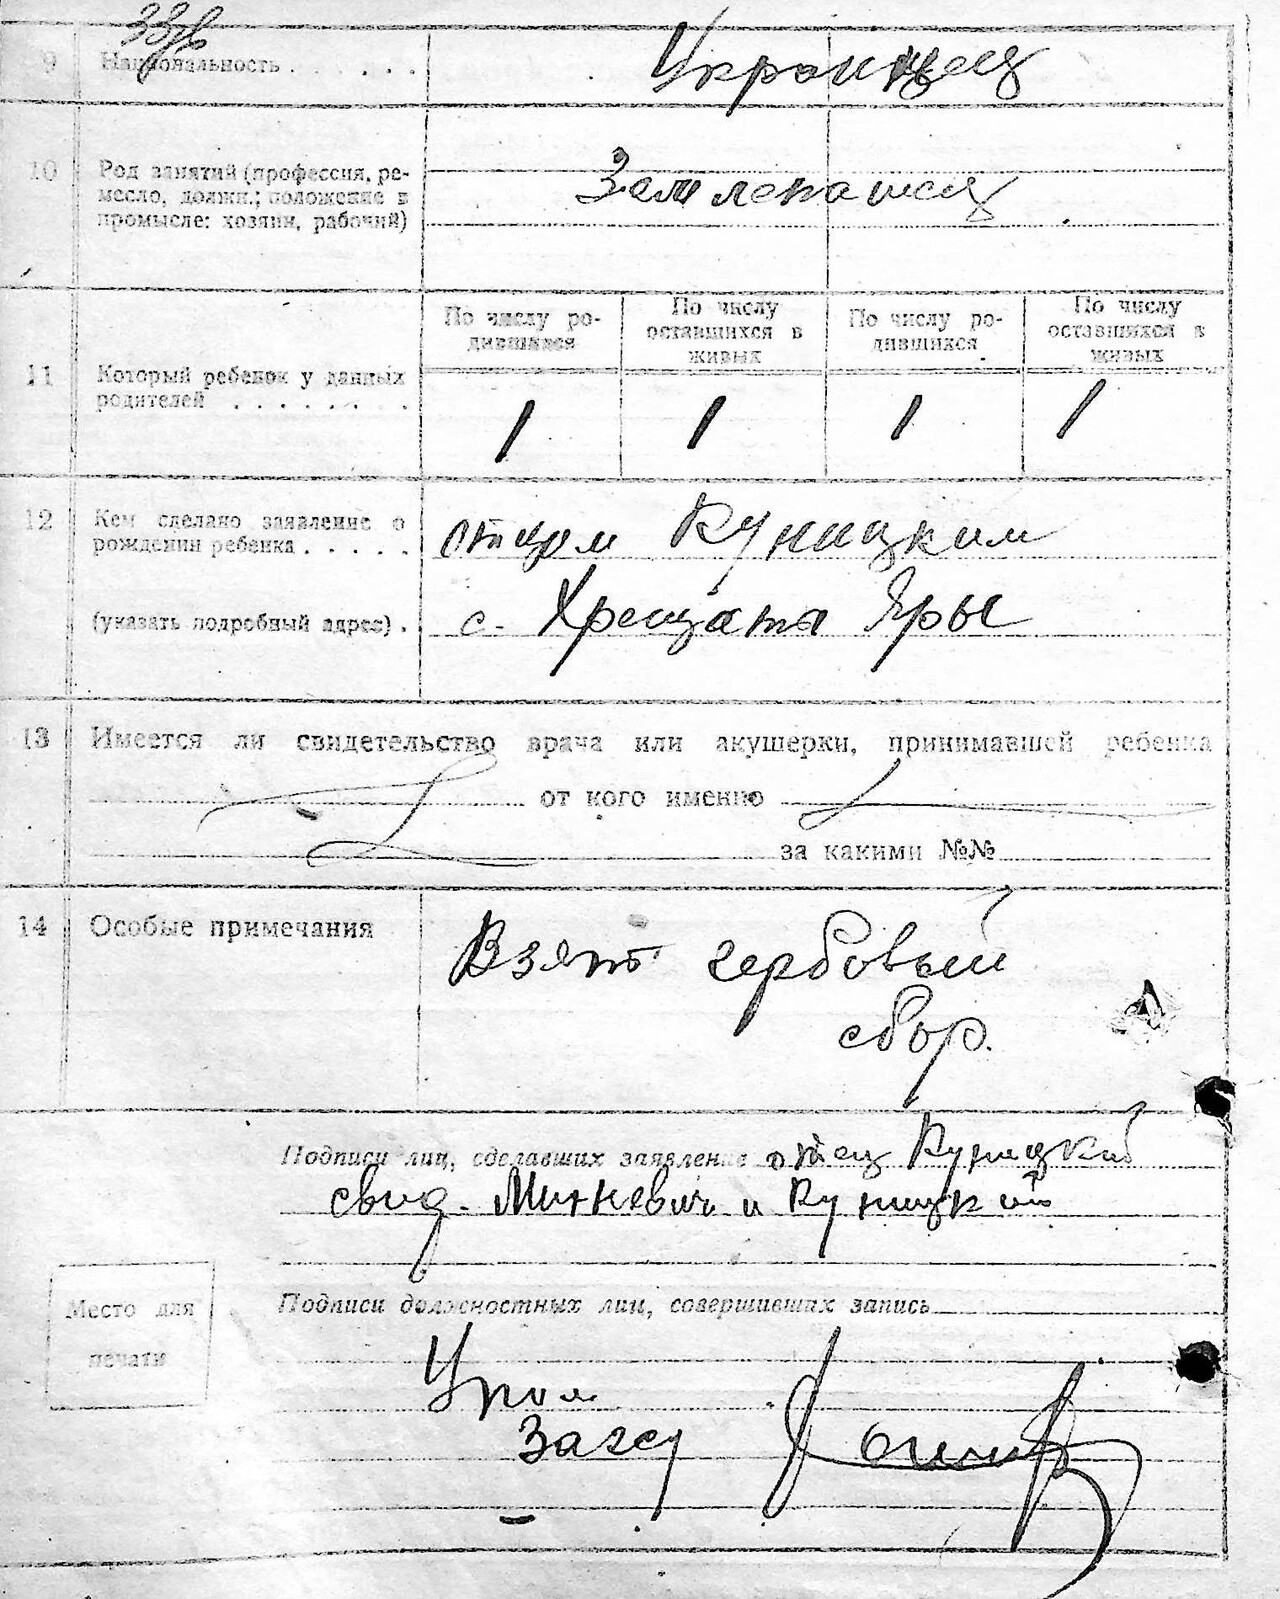 9 Национальность . . . . . . Украинец
10 Род занятий (профессия, ре-
месло, должн.; положение в
промысле: хозяин, рабочий)
Землепашец
По числу ро-
дившихся
По числу
оставшихся в
живых
По числу ро-
дившихся
По числу
оставшихся в
живых
11 Который ребенок у данных
родителей . . . . . . . .
1 1 1 1
12 Кем сделано заявление о
рождении ребенка . . . . .
отцом Куницким
(указать подробный адрес) . с. Хрещата Яры
13 Имеется ли свидетельство врача или акушерки, принимавшей ребенка
от кого именно
за какими №№
14 Особые примечания
Взят гербовый
сбор.
Подписи лиц, сделавших заявление отец Куницкий
свид. Минкевич и Куницкий
Место для
печати
Подписи должностных лиц, совершивших запись
Упол
Загсу